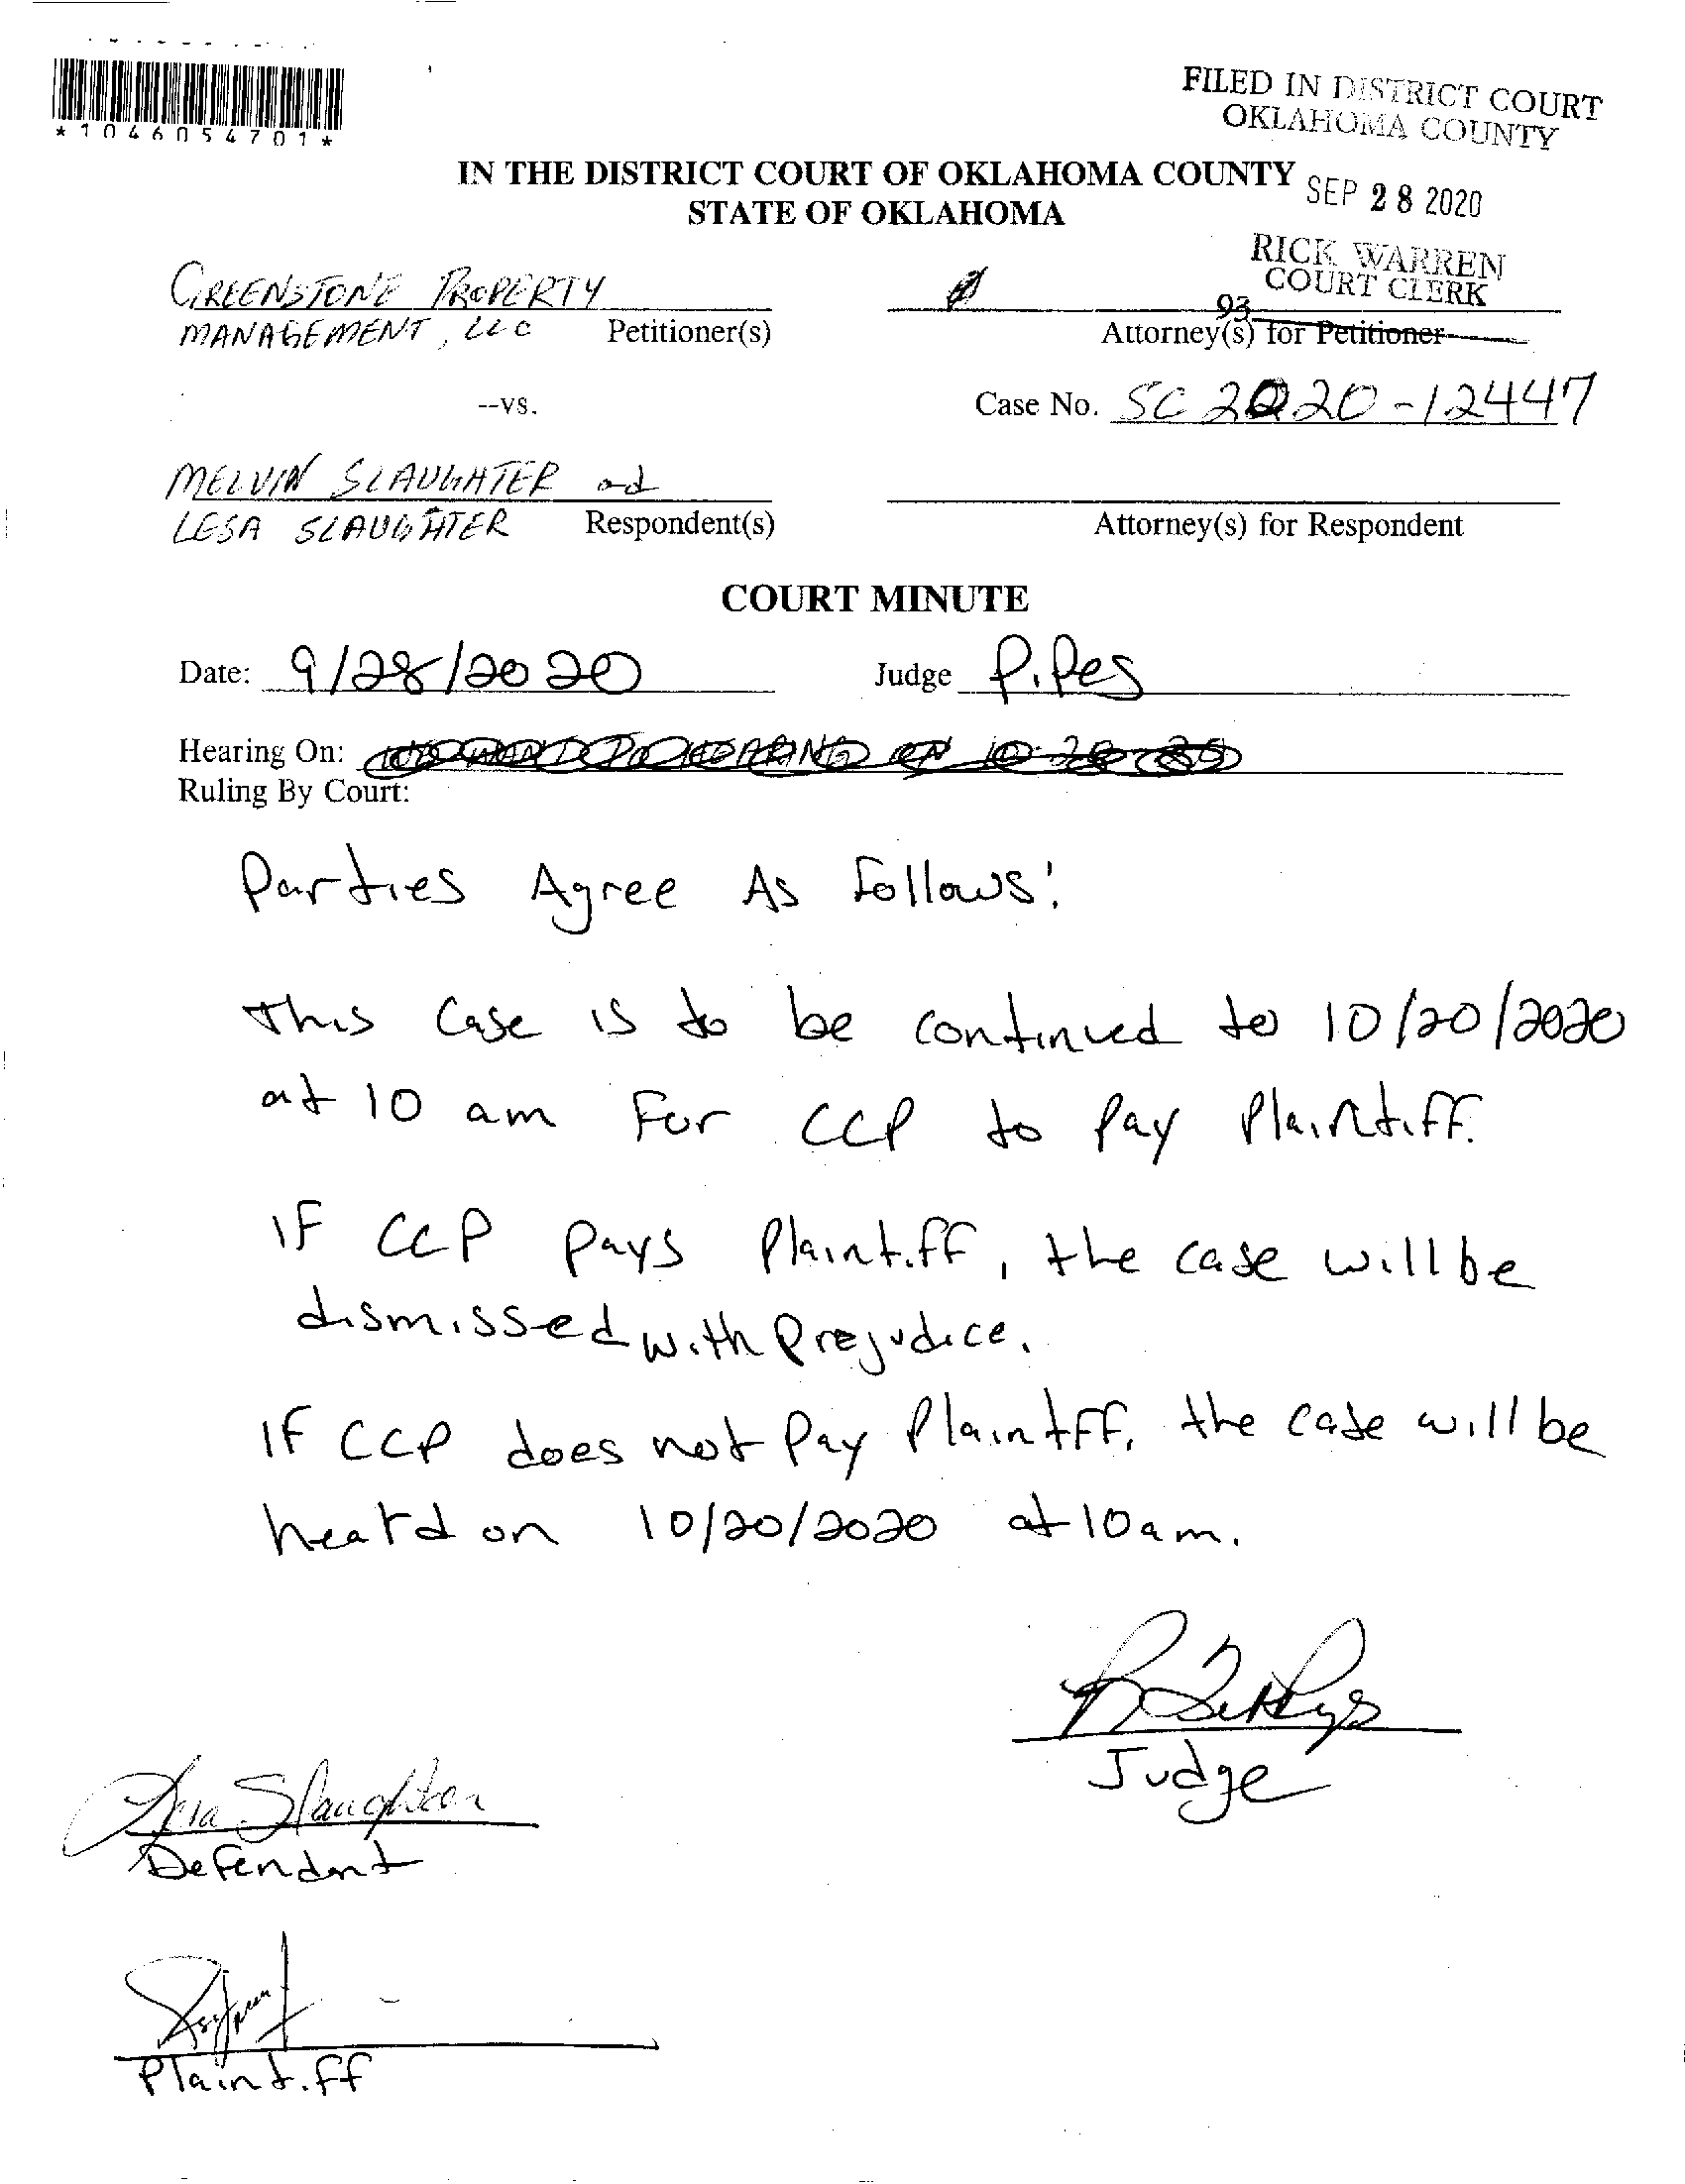 *1046054701*
FILED IN DISTRICT COURT
OKLAHOMA COUNTY
IN THE DISTRICT COURT OF OKLAHOMA COUNTY
STATE OF OKLAHOMA
SEP 28 2020
RICK WARREN
COURT CLERK
93
GREENSTONE PROPERTY
MANAGEMENT, LLC Petitioner(s)
Attorney(s) for Petitioner
--vs.
Case No. SC 2020-12447
MELVIN SLAUGHTER and
LESA SLAUGHTER Respondent(s)
Attorney(s) for Respondent
COURT MINUTE
Date: 9/28/2020 Judge P.Pes
Hearing On:
Ruling By Court:
Parties Agree As Follows:
This Case is to be continued to 10/20/2020
at 10 am For CCP to Pay Plaintiff.
IF CCP Pays Plaintiff, the case will be
dismissed with Prejudice.
IF CCP does not Pay Plaintff, the case will be
heard on 10/20/2020 at 10am.
Judge
Lesa Slaughter
Defendant
Plaintiff